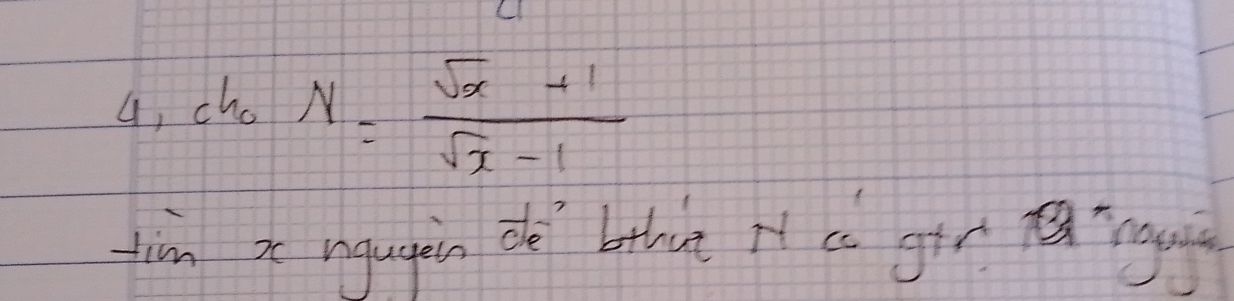 4, cho N = \frac{\sqrt{x} + 1}{\sqrt{x} - 1}
tìm x nguyên để bthức N có gtrị nguyên